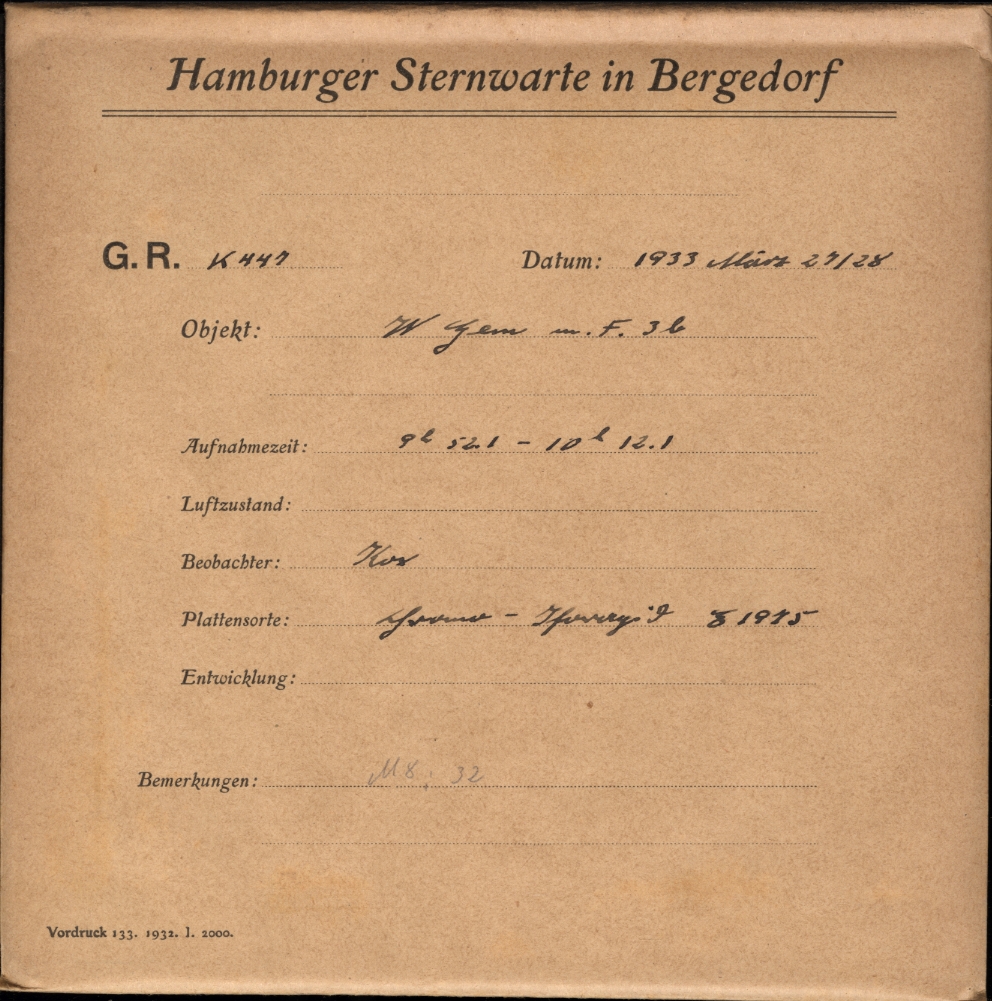 Hamburger Sternwarte in Bergedorf
G. R. K 447 Datum: 1933 März 27/28
Objekt: W Gem m. F. 3b
Aufnahmezeit: 9h 52.1 – 10h 12.1
Luftzustand:
Beobachter:
Plattensorte: Chromo –
Entwicklung:
Bemerkungen: 32
Vordruck 133. 1932. I. 2000.